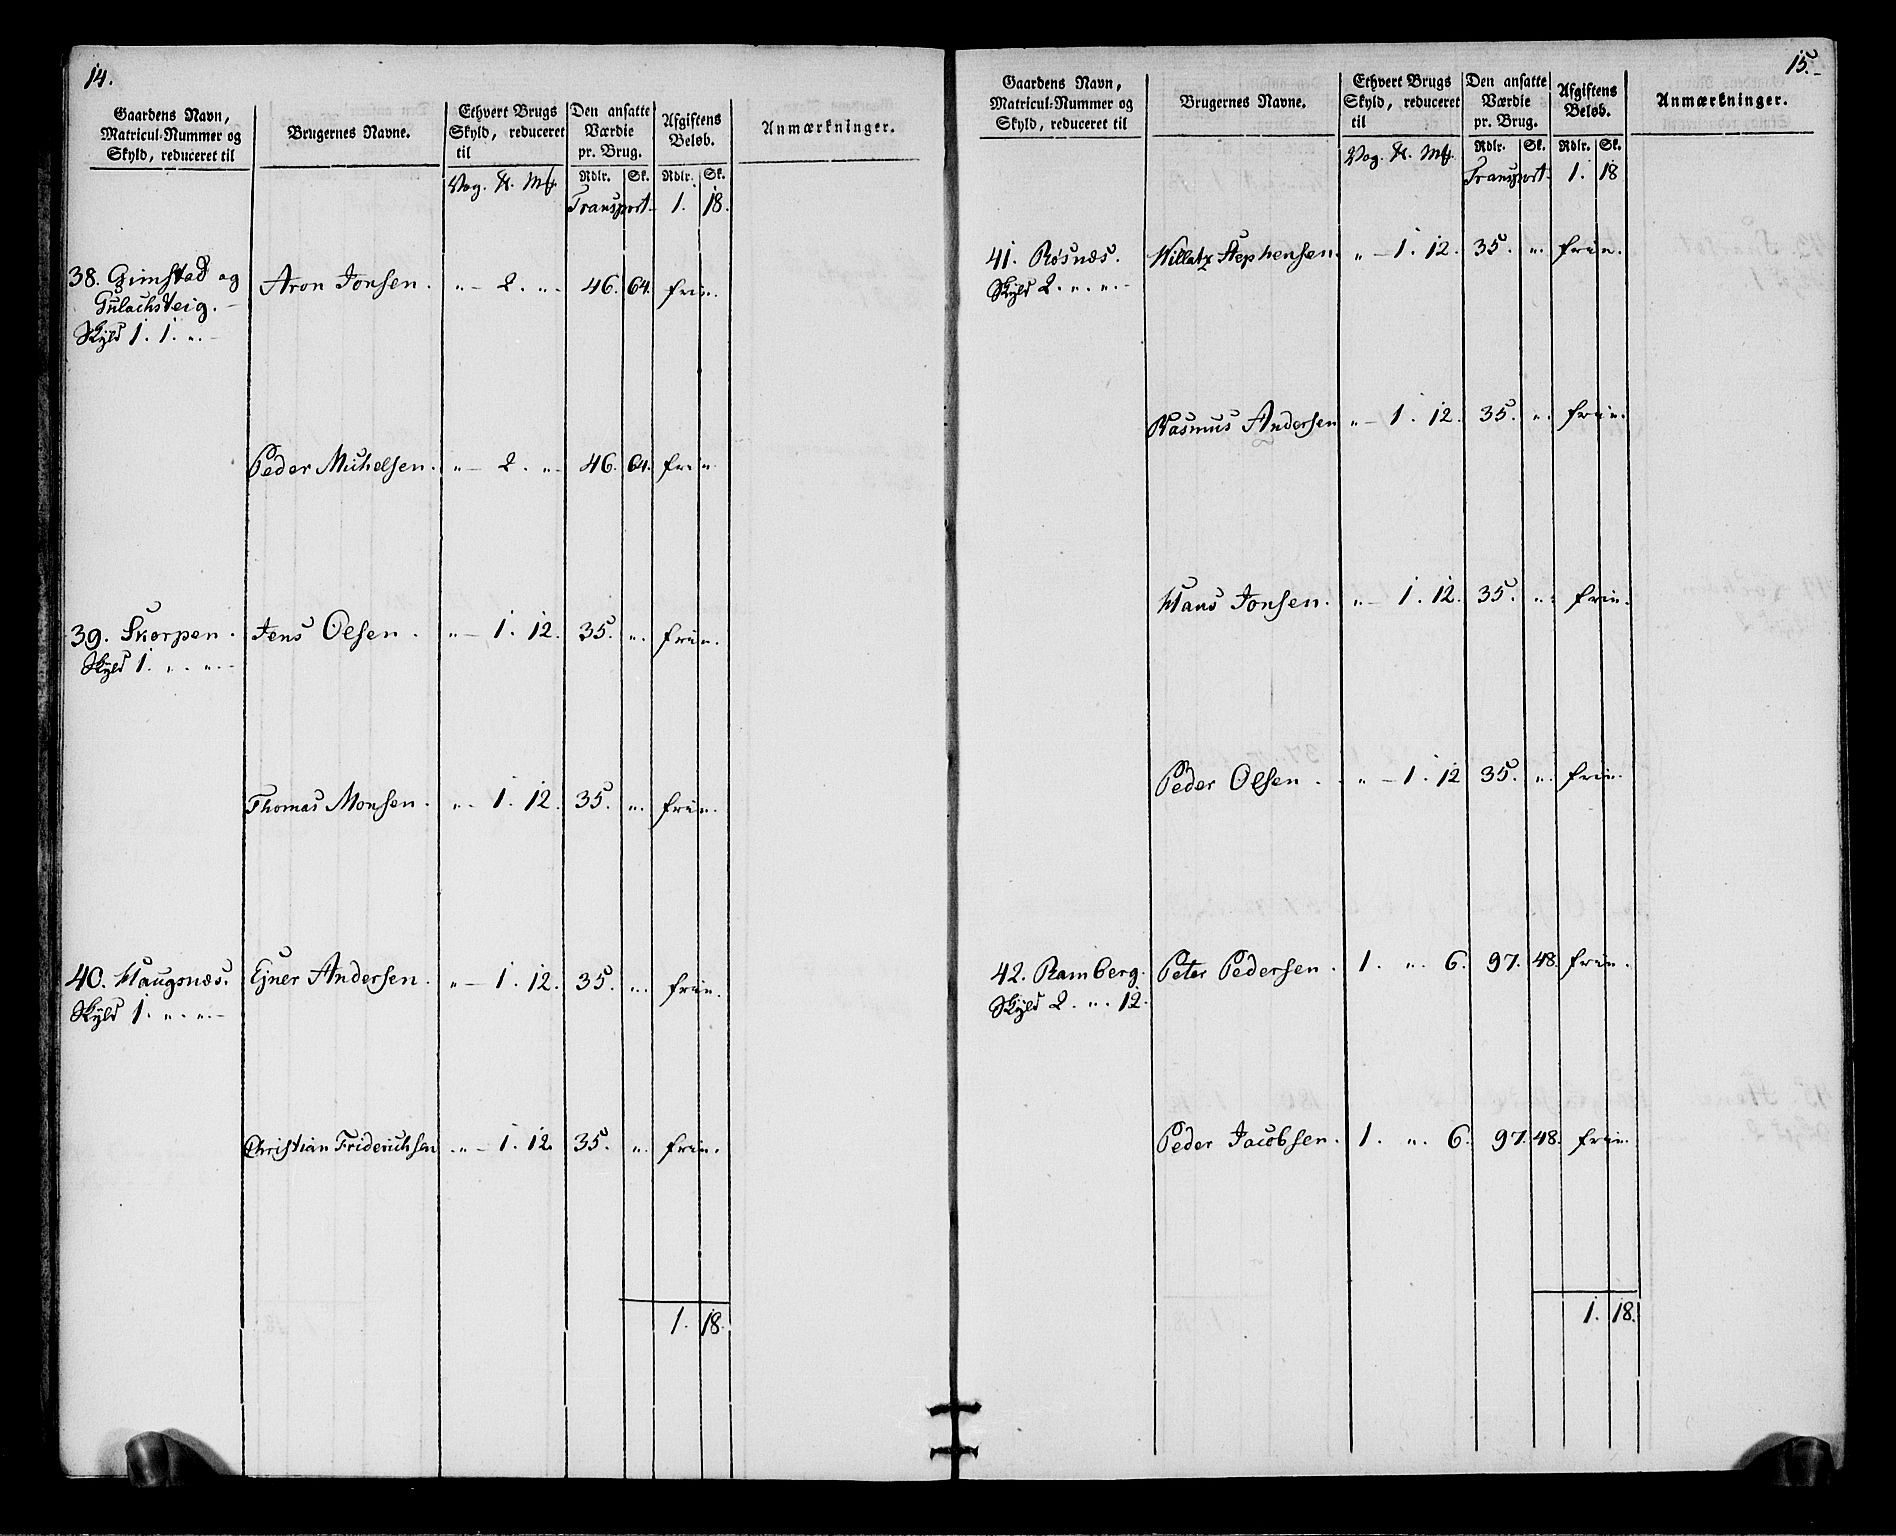 14.
Gaardens Navn,
Matricul-Nummer og
Skyld, reduceret til
Brugernes Navne.
Ethvert Brugs
Skyld, reduceret
til
Den ansatte
Værdie
pr. Brug.
Afgiftens
Beløb.
Anmærkninger.
Vog. ℔. Mk.
Rdlr. Sk. Rdlr. Sk.
Transport. 1. 18.
38. Gimstad og Aron Jonsen. „ – 2. „ 46. 64. frie.
Gulachsteig. –
Skyld 1. 1. „. –
Peder Michelsen. „ – 2. „ 46. 64. frie.
39. Skorpen. Jens Olsen. „ – 1. 12. 35. „. frie.
Skyld 1. „. „. –
Thomas Monsen. „. 1. 12. 35. „. frie.
40. Haugsnæs. Ejner Andersen. „ – 1. 12. 35. „. frie.
Skyld 1. „. „. –
Christian Friderichsen „ – 1. 12. 35. „. frie.
1. 18.
15. –
Gaardens Navn,
Matricul-Nummer og
Skyld, reduceret til
Brugernes Navne.
Ethvert Brugs
Skyld, reduceret
til
Den ansatte
Værdie
pr. Brug.
Afgiftens
Beløb.
Anmærkninger.
Vog. ℔. Mk.
Rdlr. Sk. Rdlr. Sk.
Transport. 1. 18
41. Røsnæs. Willatz Stephensen. „ – 1. 12. 35. „. frie.
Skyld 2. „. „. –
Rasmus Andersen „ – 1. 12. 35. „. frie.
Hans Jonsen. „ – 1. 12. 35. „. frie.
Peder Olsen. „ – 1. 12 35. „. frie.
42. Ramberg. Peter Pedersen. 1. „. 6. 97. 48. frie.
Skyld 2. „. 12.
Peder Jacobsen. 1. „. 6. 97. 48. frie.
1. 18.